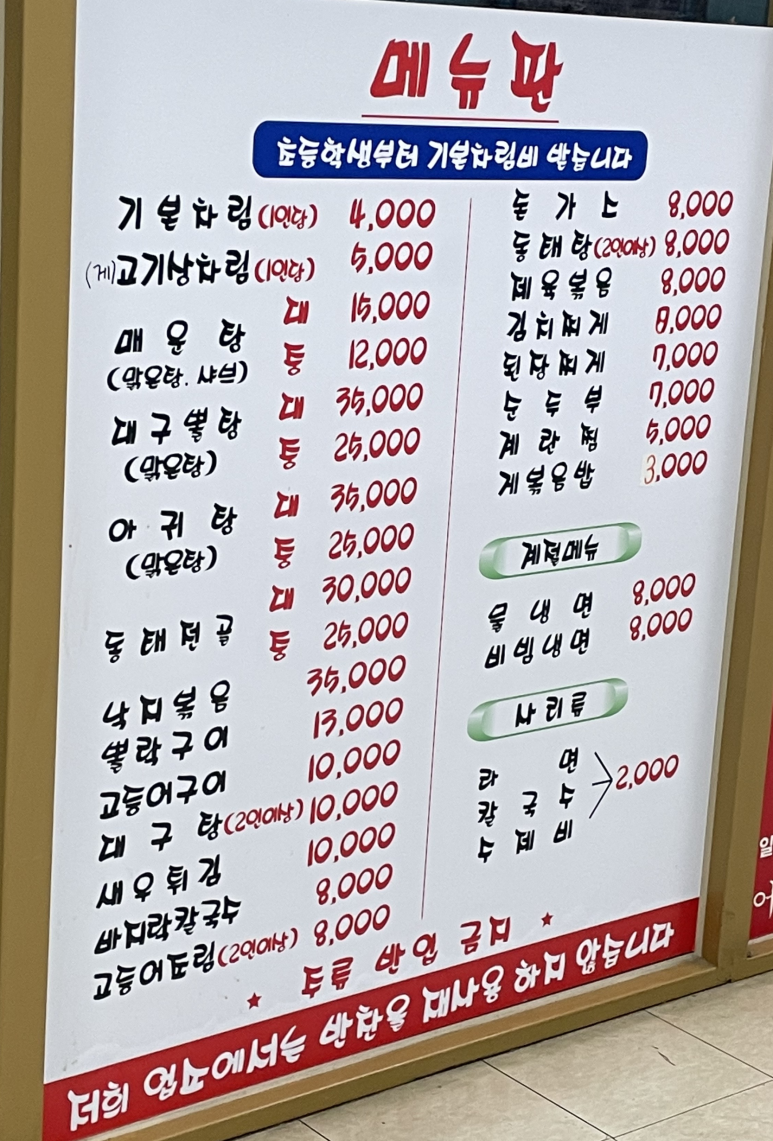 메뉴판
초등학생부터 기본차림비 받습니다
기본차림(1인당) 4,000
(게)고기상차림(1인당) 5,000
매운탕 대 15,000
(맑은탕.샤브) 중 12,000
대구뽈탕 대 35,000
(맑은탕) 중 25,000
아귀탕 대 35,000
(맑은탕) 중 25,000
동태전골 대 30,000
중 25,000
낙지볶음 35,000
뽈락구이 13,000
고등어구이 10,000
대구탕(2인이상) 10,000
새우튀김 10,000
바지락칼국수 8,000
고등어조림(2인이상) 8,000
돈가스 8,000
동태탕(2인이상) 8,000
제육볶음 8,000
김치찌게 8,000
된장찌게 7,000
순두부 7,000
계란찜 5,000
게볶음밥 3,000
계절메뉴
물냉면 8,000
비빔냉면 8,000
사리류
라면
칼국수 2,000
수제비
★ 주류 반입 금지 ★
저희 업소에서는 반찬을 재사용 하지 않습니다